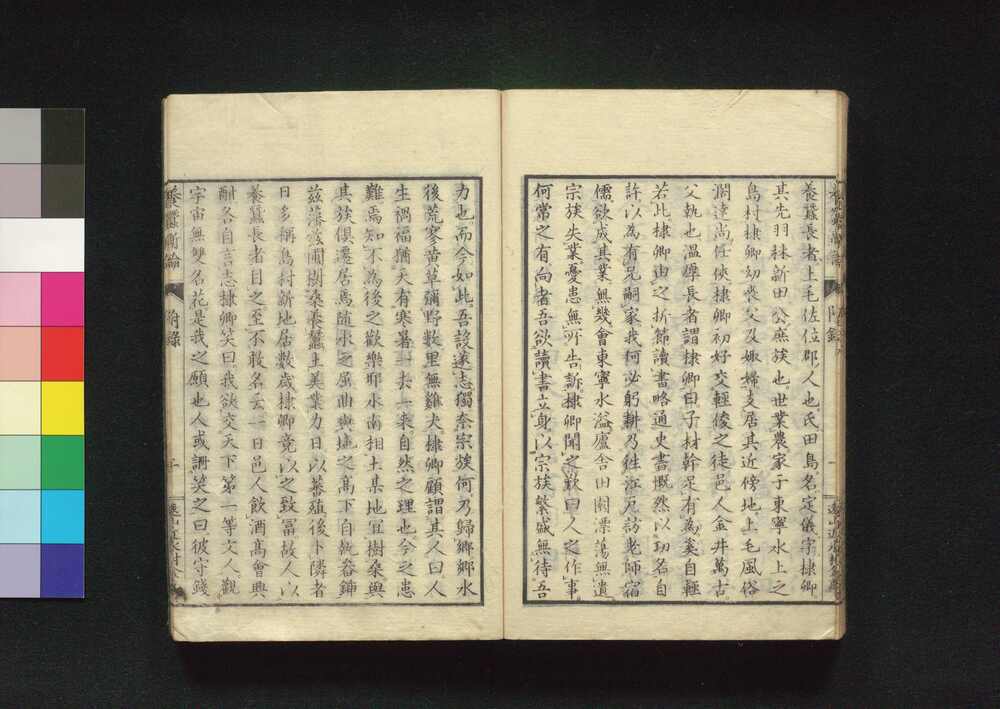 養蠶長者上毛佐位郡人也氏田島名定儀字棣卿
其先羽林新田公庶族也世業農家于東寧水上之
島村棣卿幼喪父及娵婦支居其近傍地上毛風俗
濶達尚任俠棣卿初好交輕俊之徒邑人金井萬古
父執也溫厚長者謂棣卿曰子材幹足有為奚自輕
若此棣卿由之折節讀書略通史書慨然以功名自
許以為有兄嗣家我何必躬耕乃往江戶訪老師宿
儒欲成其業無幾會東寧水溢廬舍田園漂蕩無遺
宗族失業憂患無所告訴棣卿聞之歎曰人之作事
何常之有向者吾欲讀書立身以宗族繁盛無待吾
力也而今如此吾設遂志獨奈宗族何乃歸鄉鄉水
後荒寥黃草彌野數里無雞犬棣卿顧謂其人曰人
生禍福猶天有寒暑一去一來自然之理也今之患
難焉知不為後之歡樂耶水南相土某地宜樹桑與
其族俱遷居焉隨水之屈曲與境之高下自執畚鍤
茲藩茲圃樹桑養蠶土美業力日以蕃殖後卜隣者
日多稱島村新地居數歲棣卿竟以之致富故人以
養蠶長者目之至不敢名云一日邑人飲酒高會興
酣各自言志棣卿笑曰我欲交天下第一等文人觀
宇宙無雙名花是我之願也人或訕笑之曰彼守錢
養蠶新論
附錄